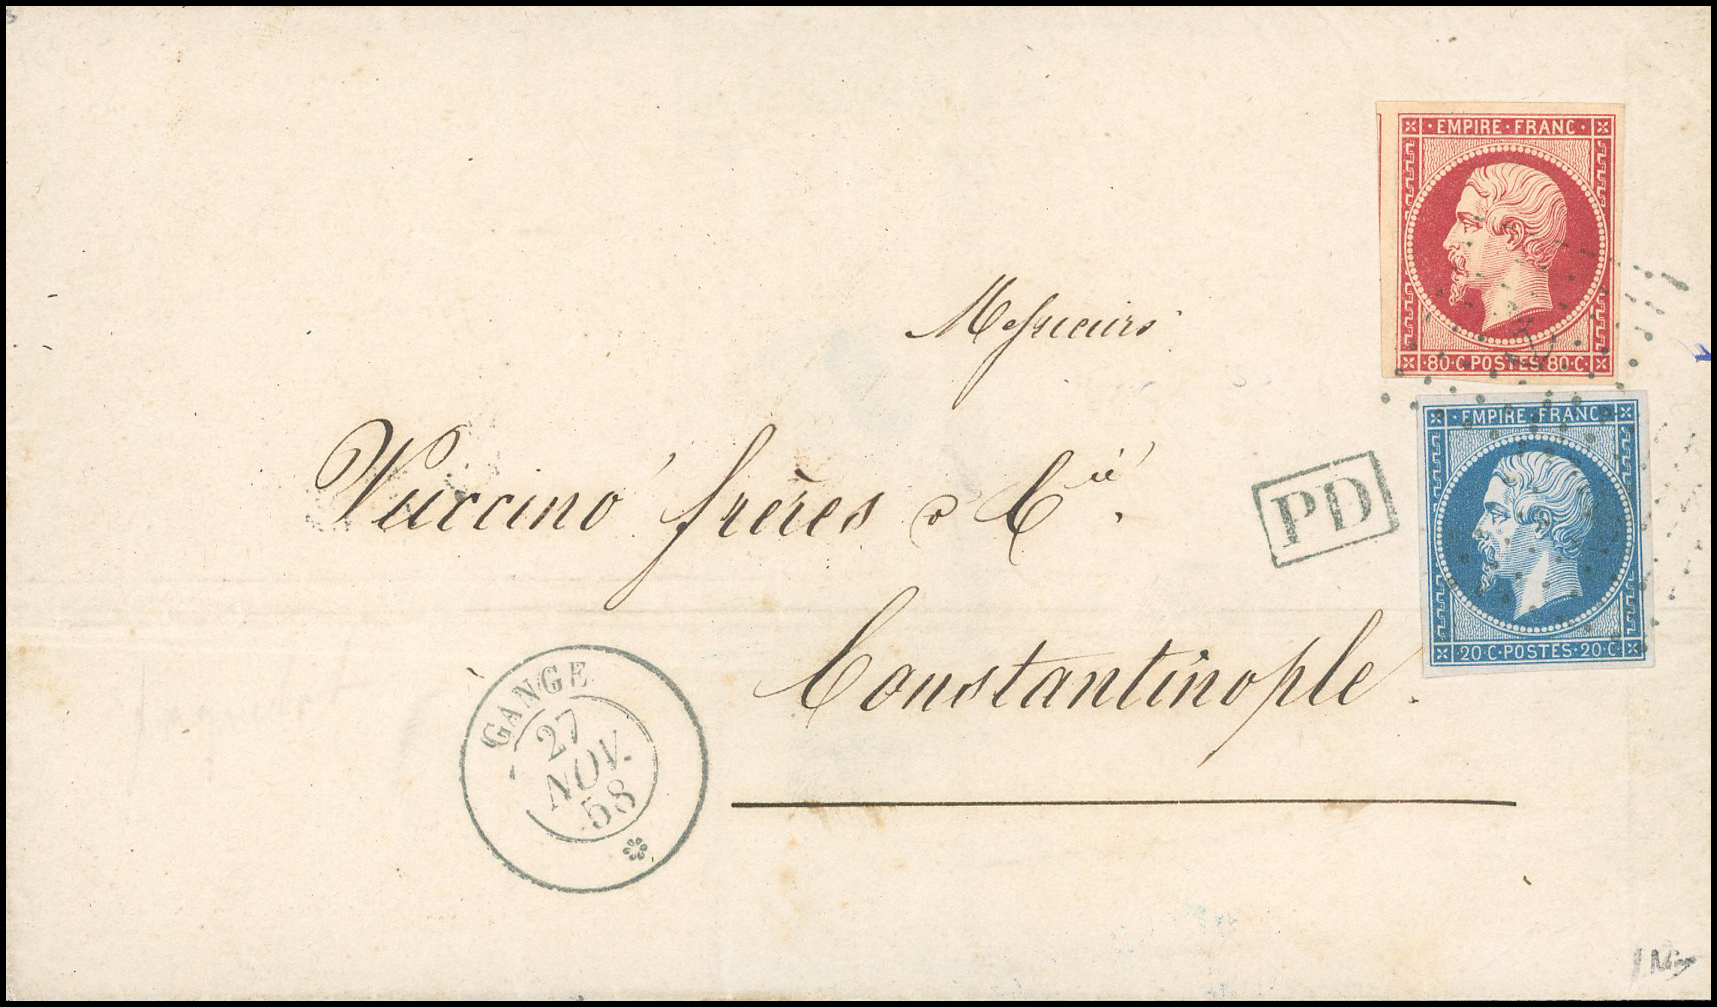 · EMPIRE · FRANC ·
· 80 · C · POSTES · 80 · C ·
Messieurs
· EMPIRE · FRANC ·
· 20 · C · POSTES · 20 · C ·
Vuccino frères & Cie.
PD
Constantinople.
GANGE
27
NOV.
58